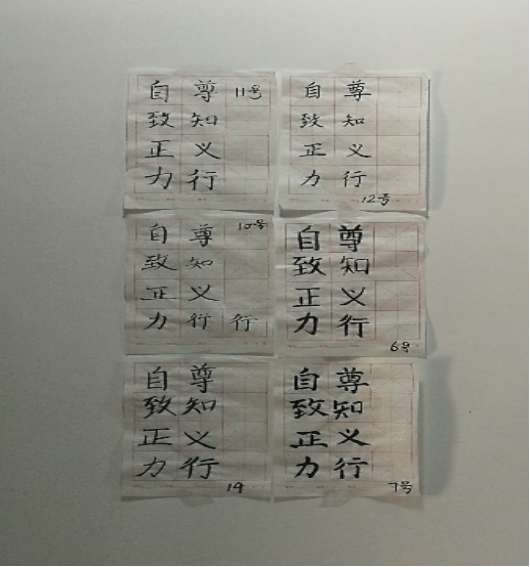 自尊 11号
致知
正义
力行
自尊
致知
正义
力行
12号
自尊 10号
致知
正义
力行 行
自尊
致知
正义
力行
6号
自尊
致知
正义
力行
14
自尊
致知
正义
力行
7号